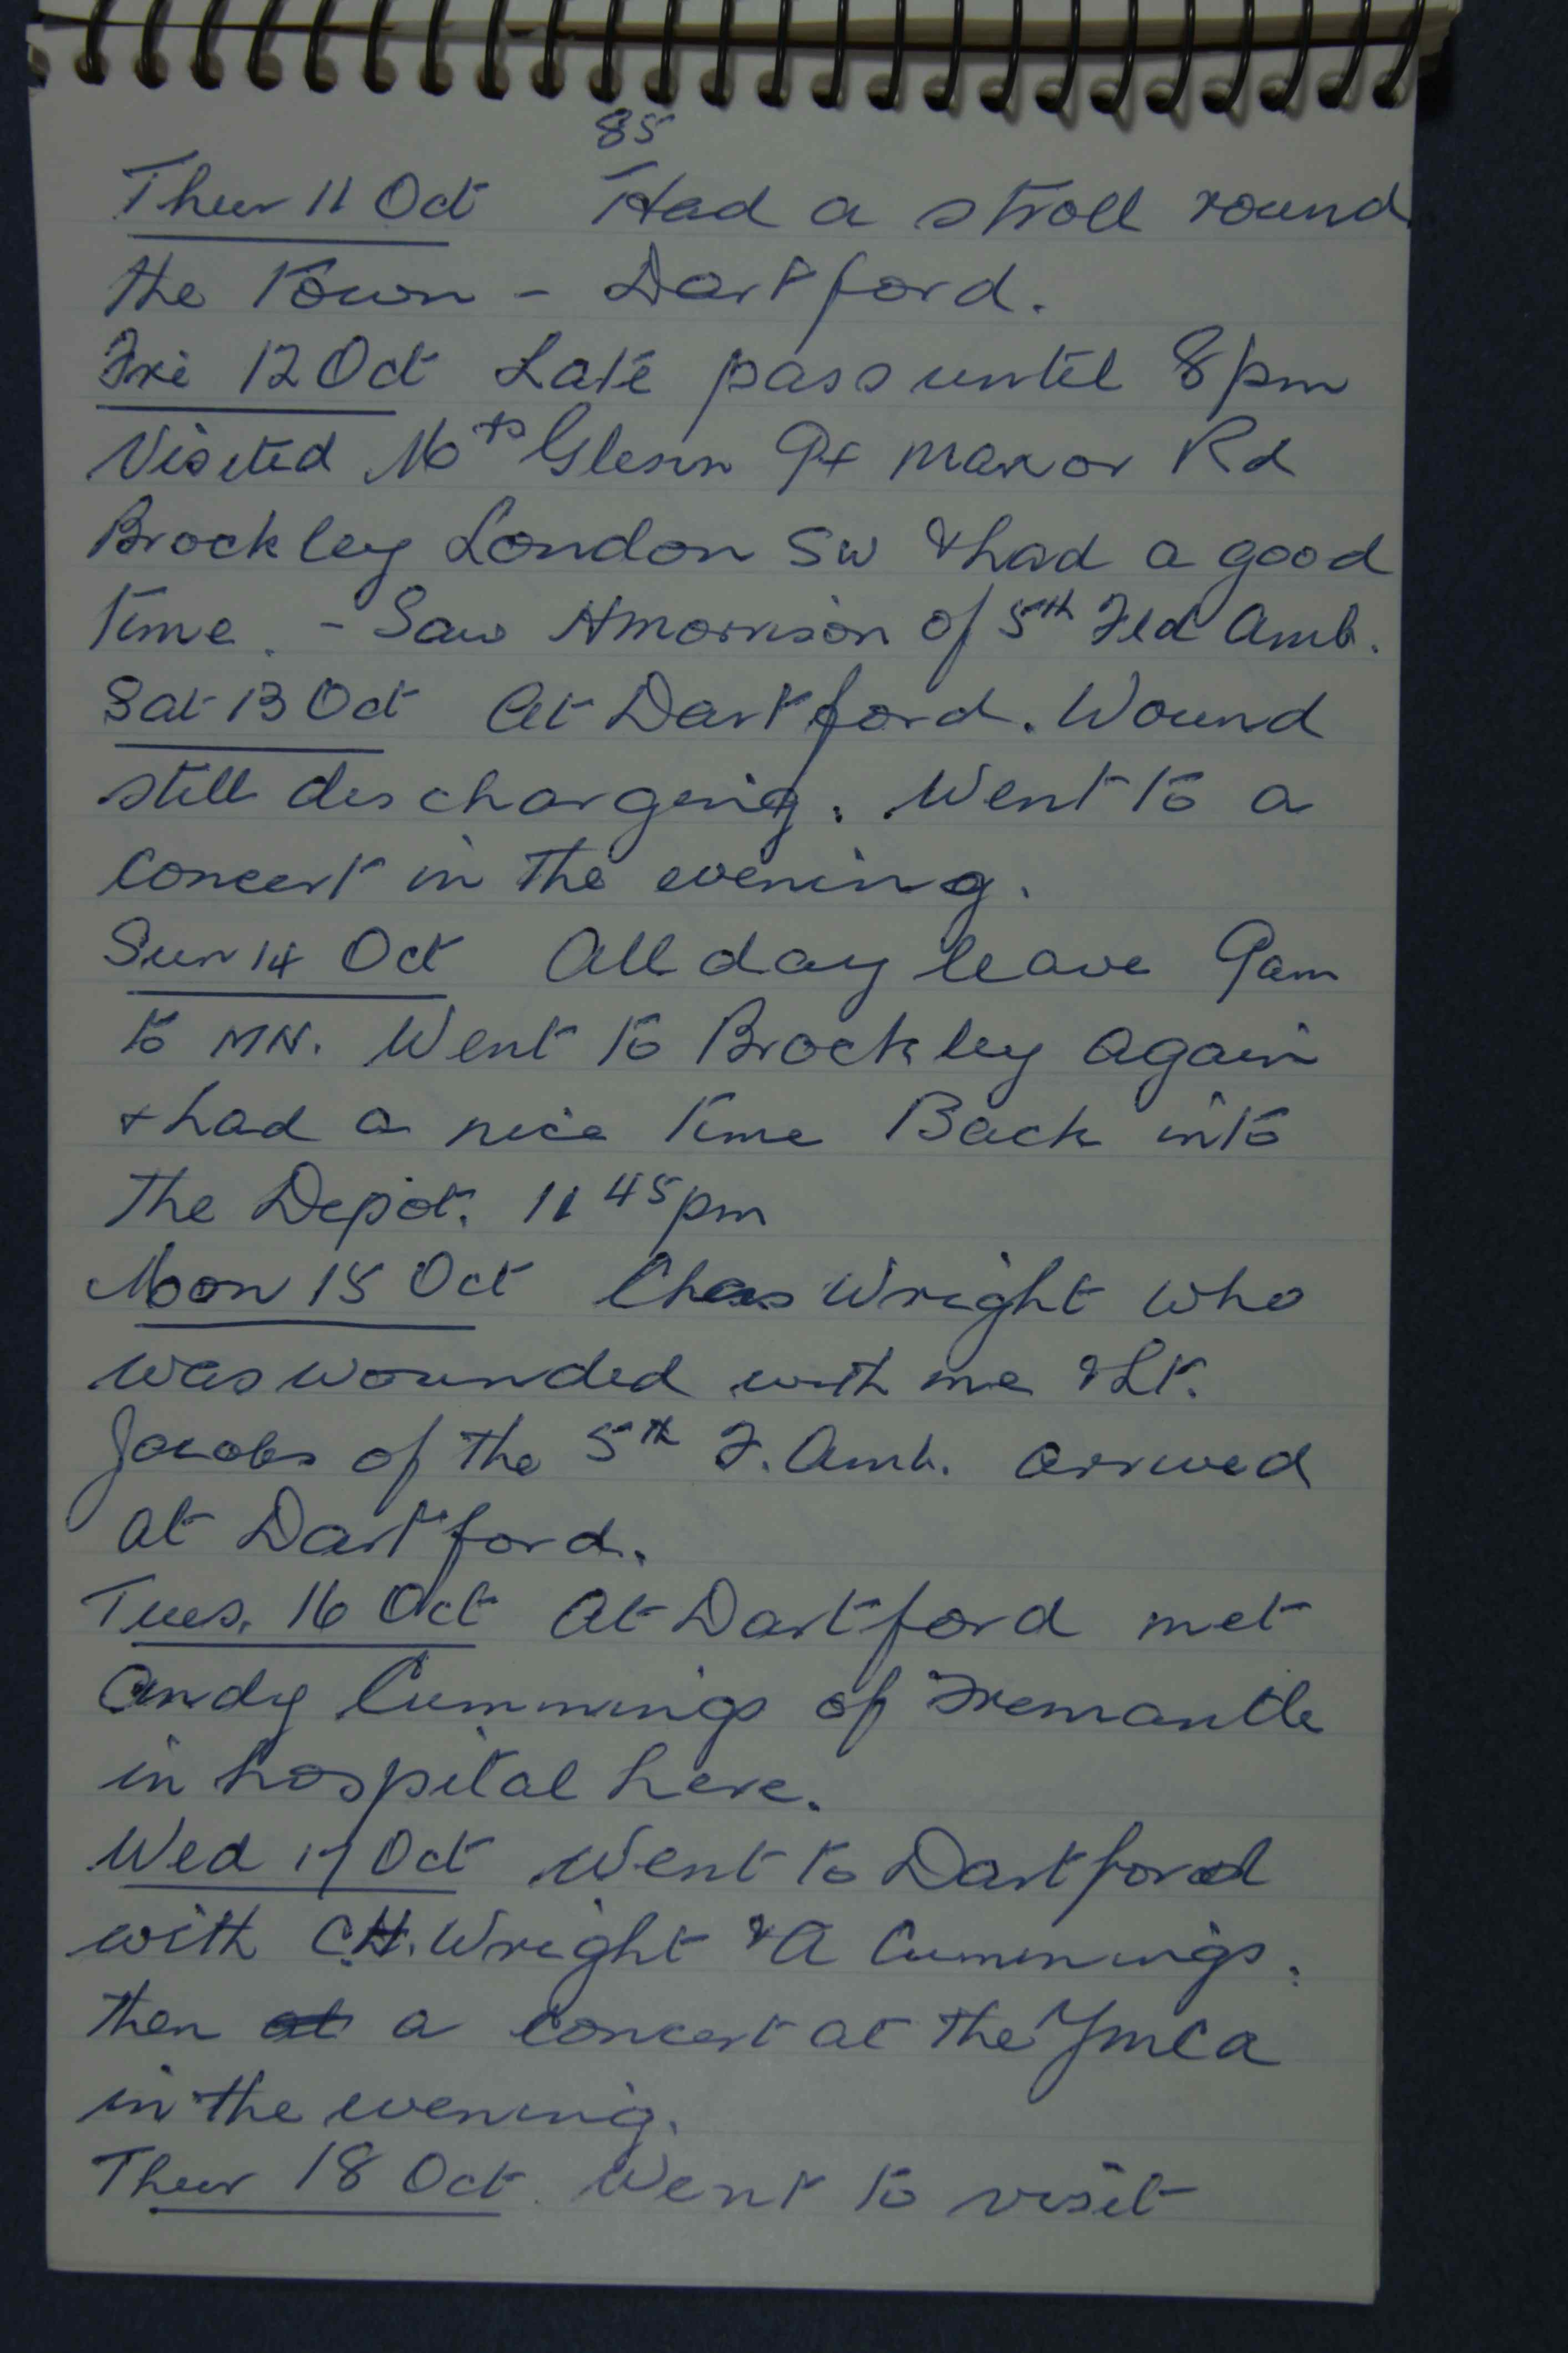 85
Thur 11 Oct Had a stroll round
the Town - Dartford.
Fri 12 Oct Late pass until 8pm
Visited Mrs Glenn 94 Manor Rd
Brockley London SW & had a good
time. - Saw H Morrison of 5th Fld Amb.
Sat 13 Oct At Dartford. Wound
still discharging. Went to a
concert in the evening.
Sun 14 Oct All day leave 9am
to MN. Went to Brockley again
+ had a nice time Back into
the Depot. 11 45 pm
Mon 15 Oct Chas Wright who
was wounded with me & Lt.
Jacobs of the 5th F. Amb. arrived
at Dartford.
Tues. 16 Oct At Dartford met
Andy Cummings of Fremantle
in hospital here.
Wed 17 Oct Went to Dartford
with C.H. Wright & A Cummings.
then at a concert at the YMCA
in the evening.
Thur 18 Oct. Went to visit